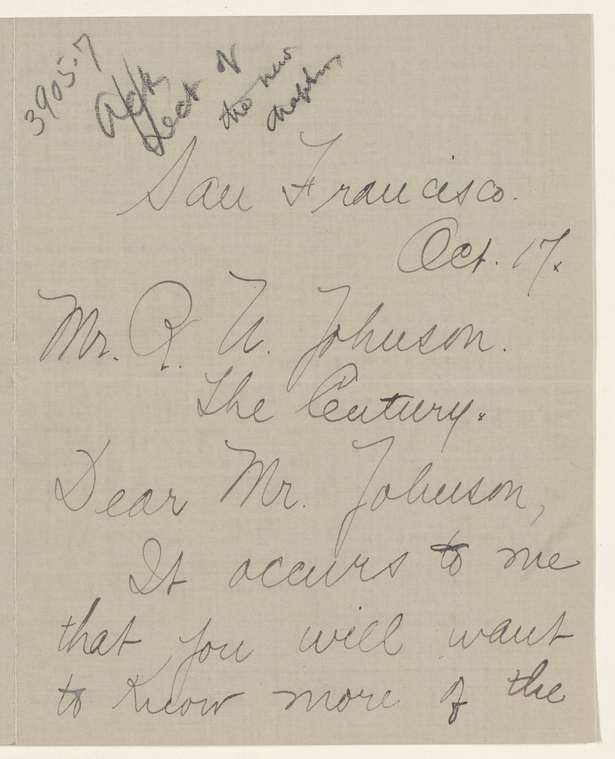 3905-7
Ack
Rect of
the new
chapters
San Francisco.
Oct. 17.
Mr. R. U. Johnson.
The Century.
Dear Mr. Johnson,
It occurs to me
that you will want
to know more of the